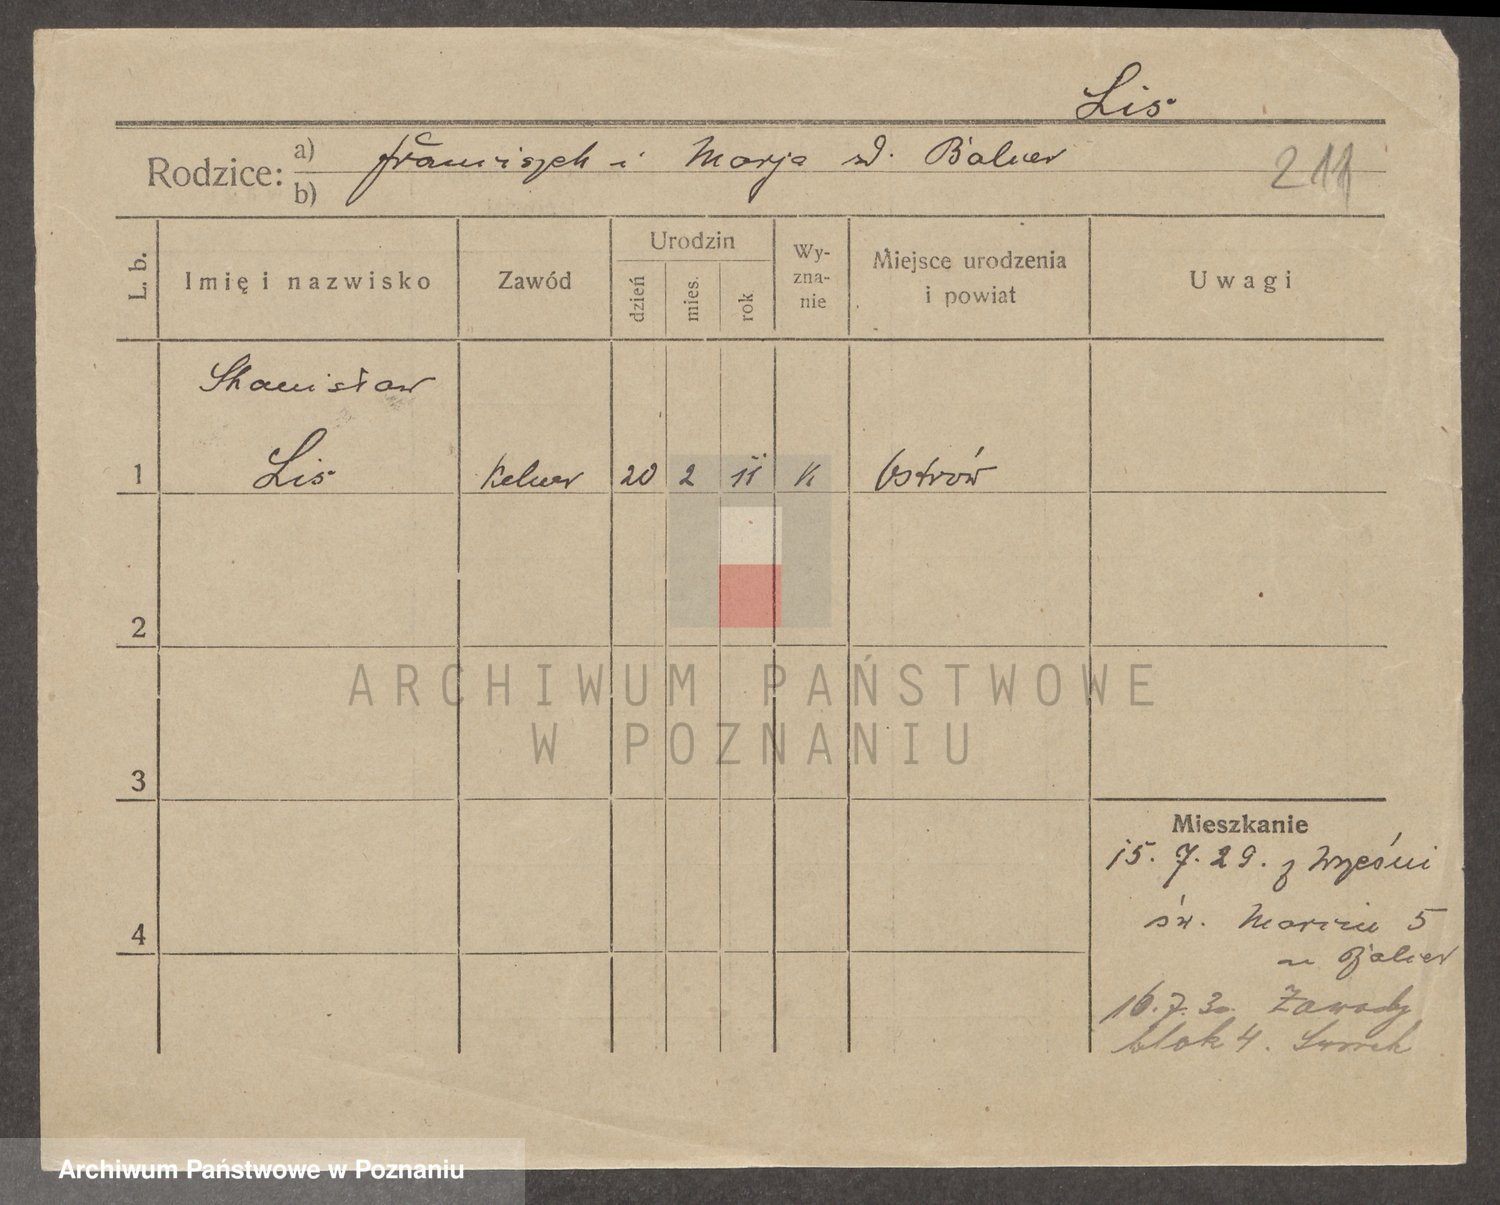 Lis
Rodzice: a) b) Franciszek i Marja d. Balcer
211
L. b.
Imię i nazwisko
Zawód
Urodzin
dzień
mies.
rok
Wy-
zna-
nie
Miejsce urodzenia
i powiat
Uwagi
Stanisław
1 Lis Kelner 20 2 11 K Ostrów
2
3
4
Mieszkanie
15. 7. 29. z Wrześni
św. Marcin 5
u Balcer
16.7.30. Zawady
blok 4.
ARCHIWUM PAŃSTWOWE
W POZNANIU
Archiwum Państwowe w Poznaniu